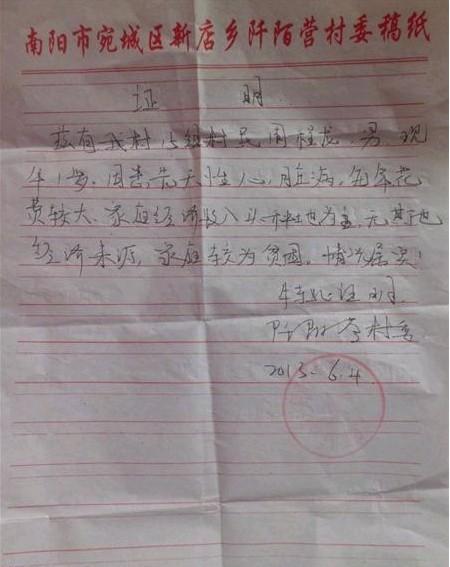 南阳市宛城区新店乡阡陌营村委稿纸
证 明
兹有我村15组村民周程龙,男,现
年1岁,因患先天性心脏病,每年花
费较大,家庭经济收入以种地为主,无其他
经济来源,家庭较为贫困,情况属实!
特此证明
阡陌营村委
2013-6.4